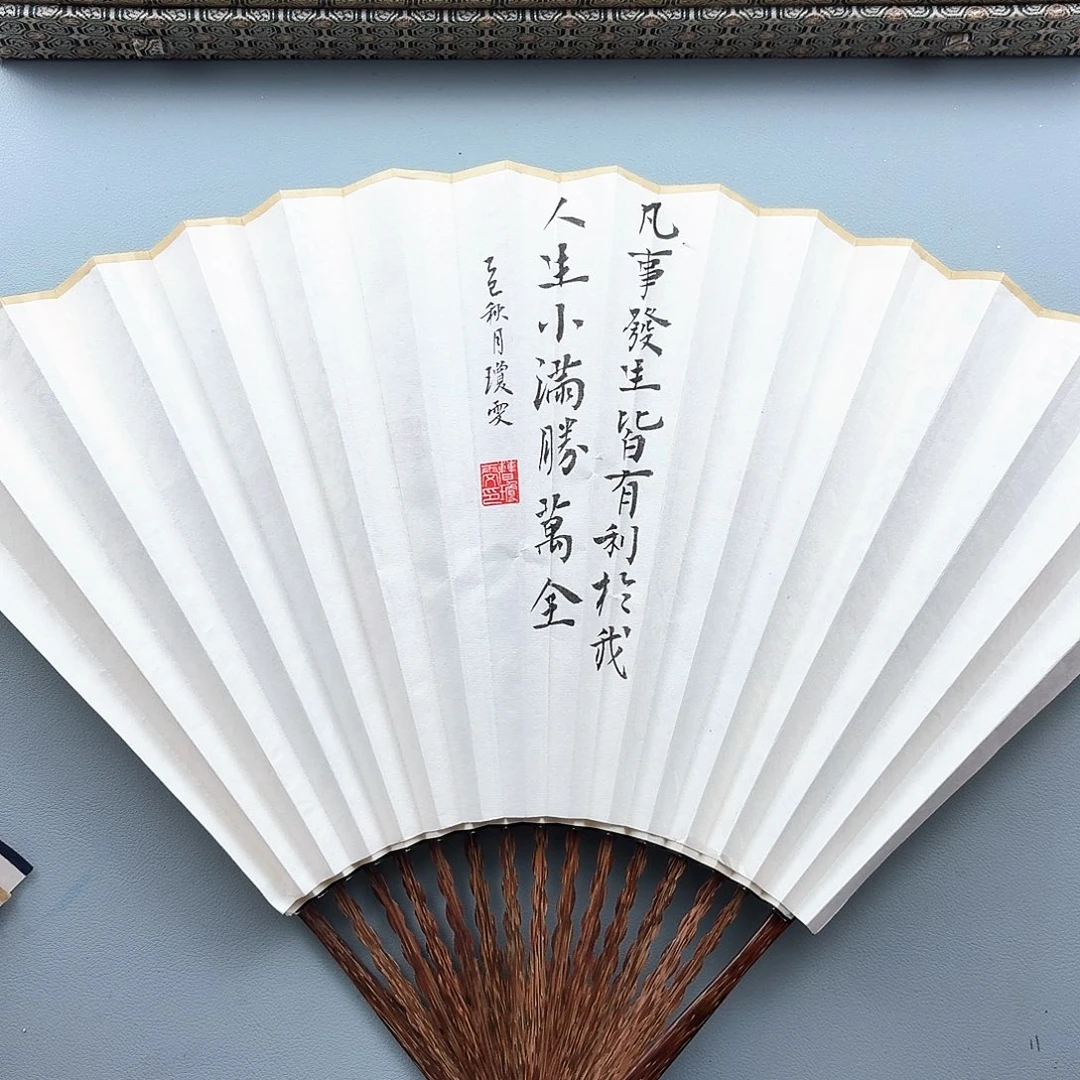 凡事發生皆有利於我
人生小滿勝萬全
乙巳秋月瓊雯